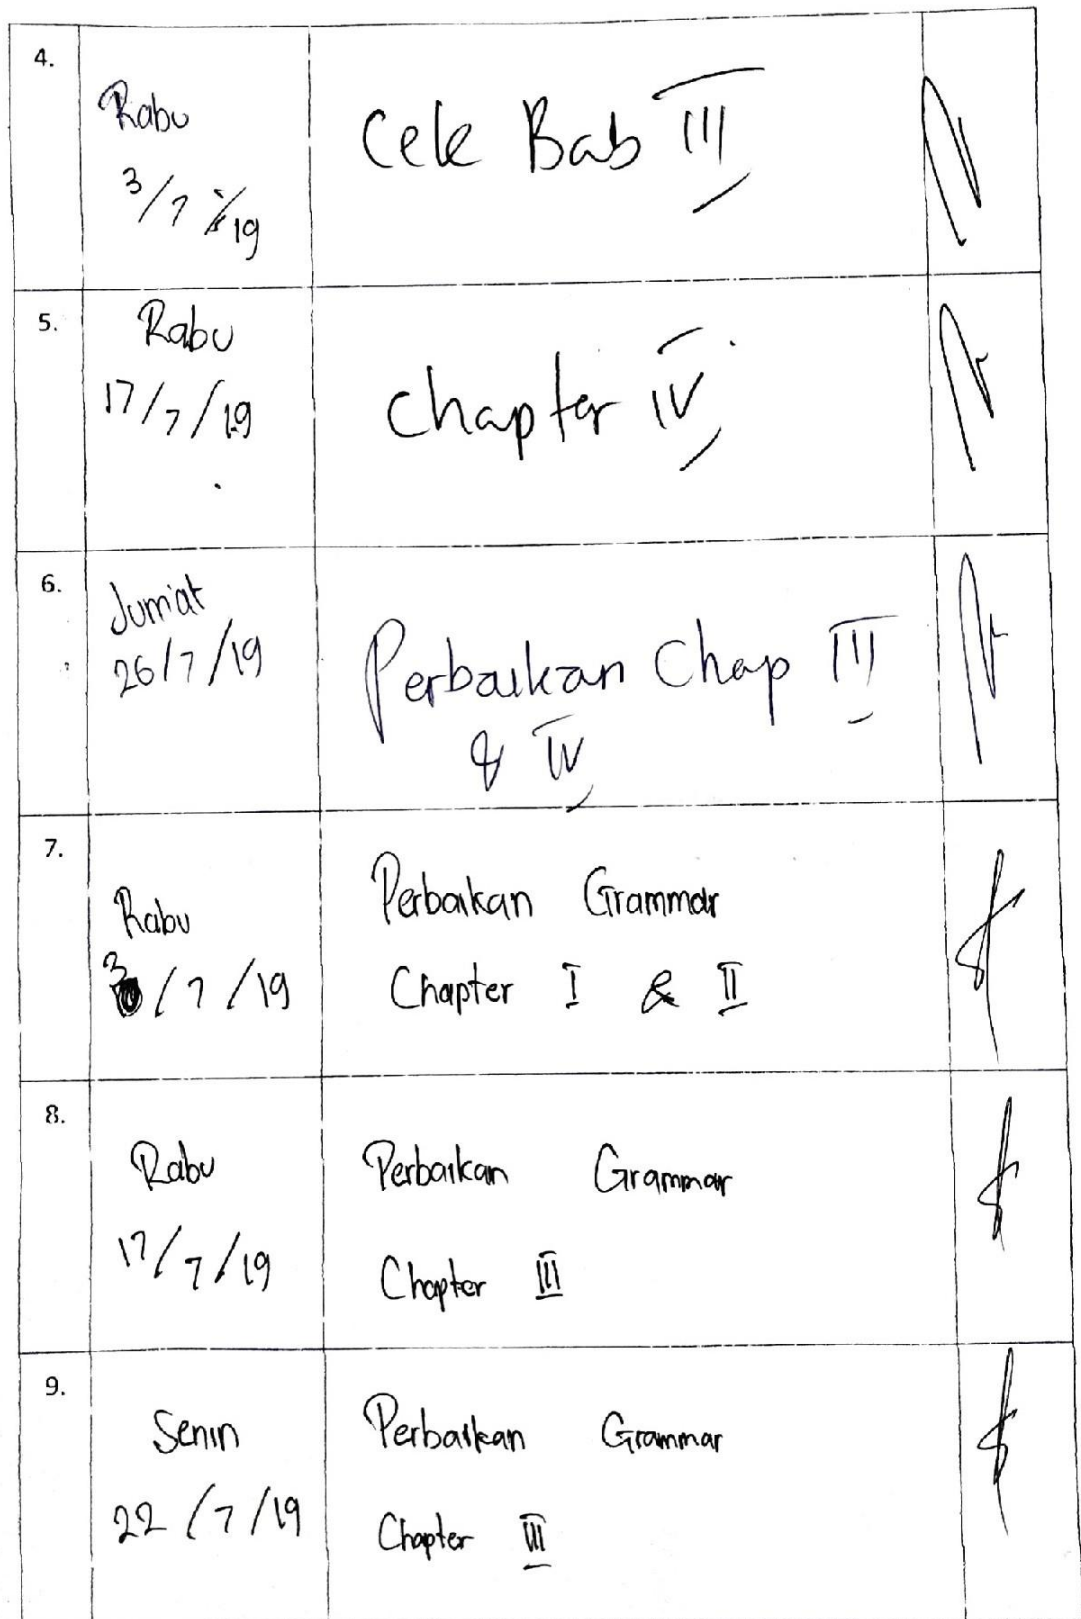 4.
Rabu
3/7/19
Cek Bab III
5.
Rabu
17/7/19
Chapter IV
6.
Jum'at
26/7/19
Perbaikan Chap III
& IV
7.
Rabu
3/7/19
Perbaikan Grammar
Chapter I & II
8.
Rabu
17/7/19
Perbaikan Grammar
Chapter III
9.
Senin
22/7/19
Perbaikan Grammar
Chapter III